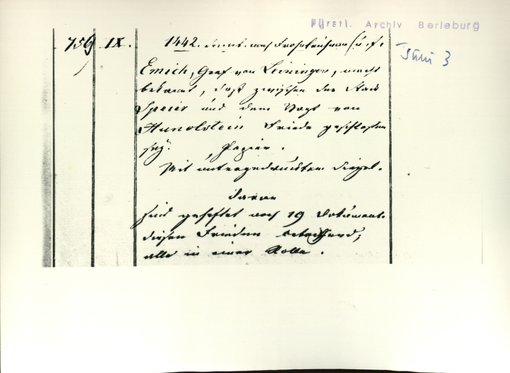 Fürstl. Archiv Berleburg
759 IX. 1442. Sonnt. nach Frohnleichnam
Emich, Graf von Leiningen, macht
bekannt, daß zwischen der Stadt
Speier und dem Vogt von
Hunolstein Friede geschlossen
sey. Papier.
Mit untergedrucktem Siegel.
Daran
sind geheftet noch 19 Dokumente
diesen Frieden betreffend,
alle in einer Rolle.